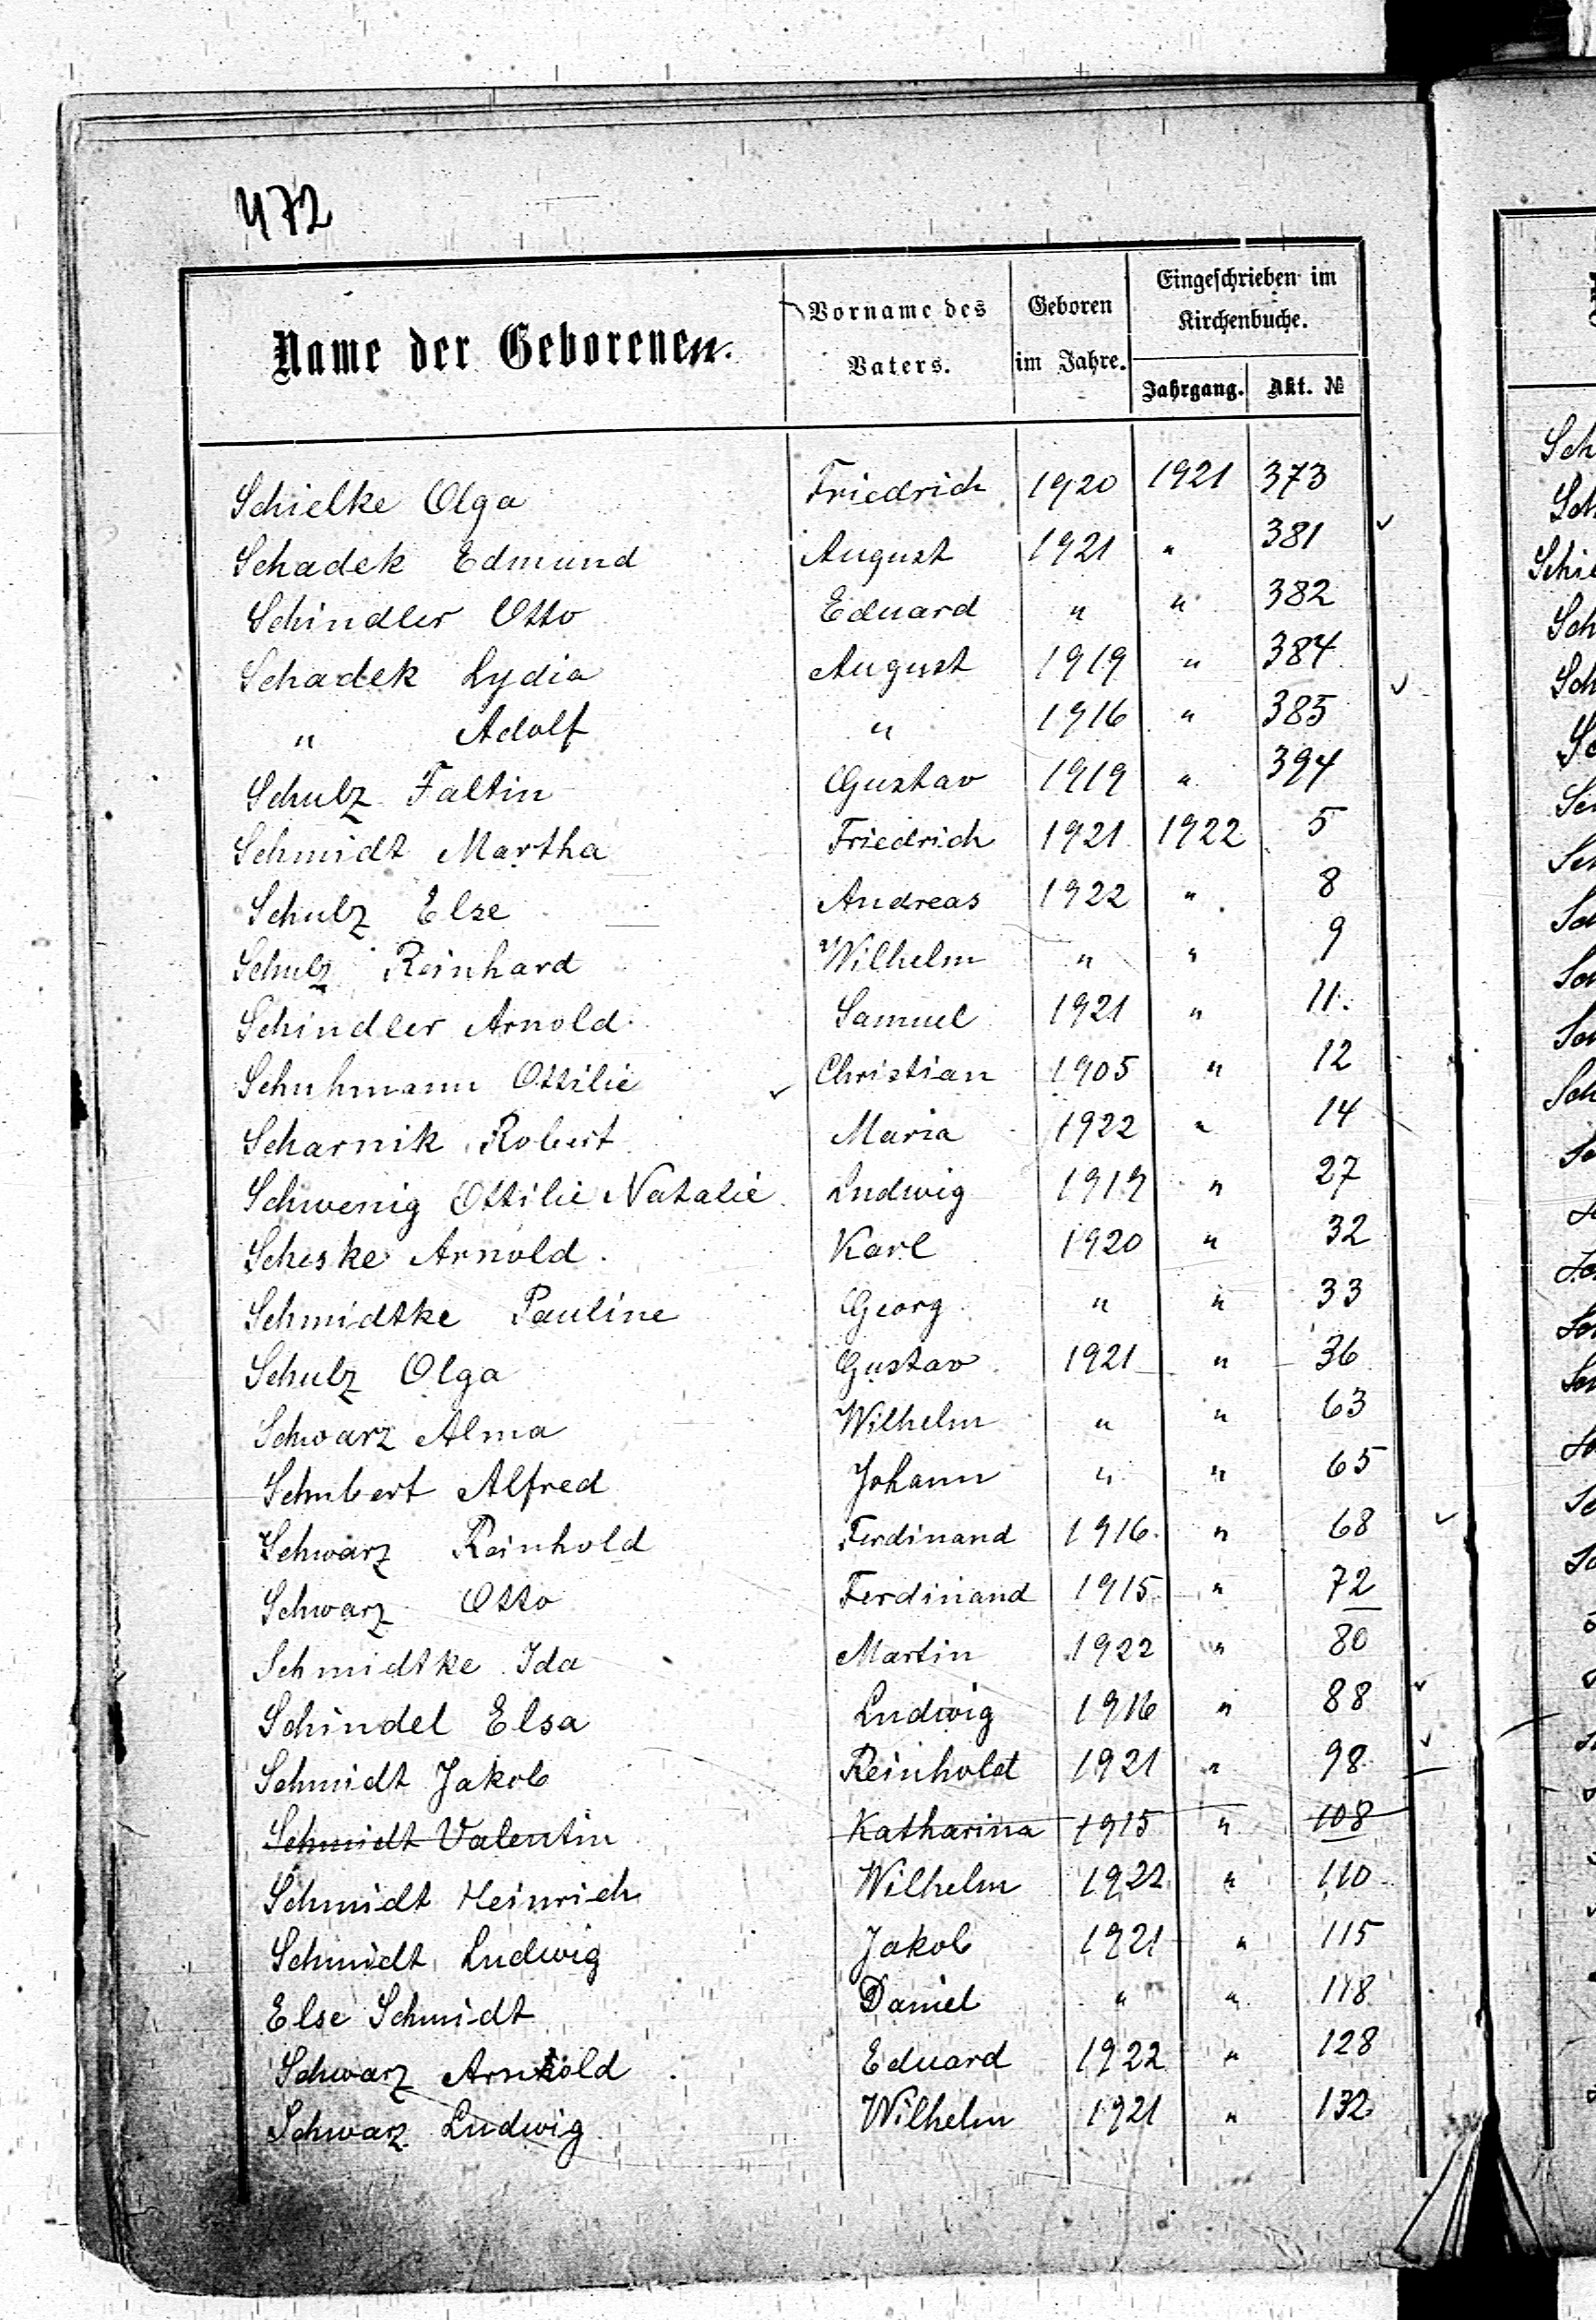 472
Name der Geborenen.
Vorname des Vaters.
Geboren im Jahre.
Eingeschrieben im Kirchenbuche.
Jahrgang. Akt. №
Schielke Olga Friedrich 1920 1921 373
Schadek Edmund August 1921 " 381
Schindler Otto Eduard " " 382
Schadek Lydia August 1919 " 384
" Adolf " 1916 " 385
Schulz Faltin Gustav 1919 " 394
Schmidt Martha Friedrich 1921 1922 5
Schulz Else Andreas 1922 " 8
Schulz Reinhard Wilhelm " " 9
Schindler Arnold Samuel 1921 " 11.
Schuhmann Ottilie Christian 1905 " 12
Scharnik Robert Maria 1922 " 14
Schwenig Ottilie Natalie Ludwig 1919 " 27
Scheske Arnold. Karl 1920 " 32
Schmidtke Pauline Georg " " 33
Schulz Olga Gustav 1921 " 36
Schwarz Alma Wilhelm " " 63
Schubert Alfred Johann " " 65
Schwarz Reinhold Ferdinand 1916 " 68
Schwarz Otto Ferdinand 1915 " 72
Schmidtke Ida Martin 1922 " 80
Schindel Elsa Ludwig 1916 " 88
Schmidt Jakob Reinhold 1921 " 98
Schmidt Valentin Katharina 1915 " 108
Schmidt Heinrich Wilhelm 1922 " 110
Schmidt Ludwig Jakob 1921 " 115
Else Schmidt Daniel " " 118
Schwarz Arnold Eduard 1922 " 128
Schwarz Ludwig Wilhelm 1921 " 132